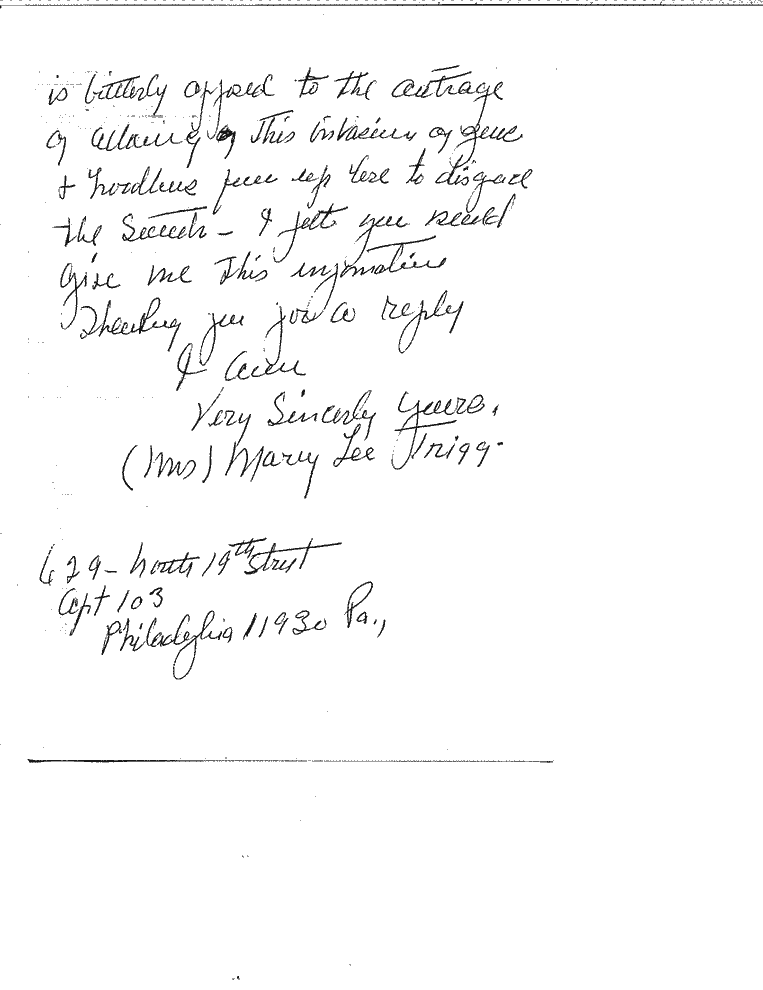 is bitterly opposed to the outrage
of allowing of this invasion of
& hoodlums from up here to disgrace
the South - I felt you would
give me this information
Thanking you for a reply
I am
Very Sincerly yours,
(Mrs) Mary Lee Trigg.
629 - North 19th Street
Apt 103
Philadelphia 11930 Pa.,